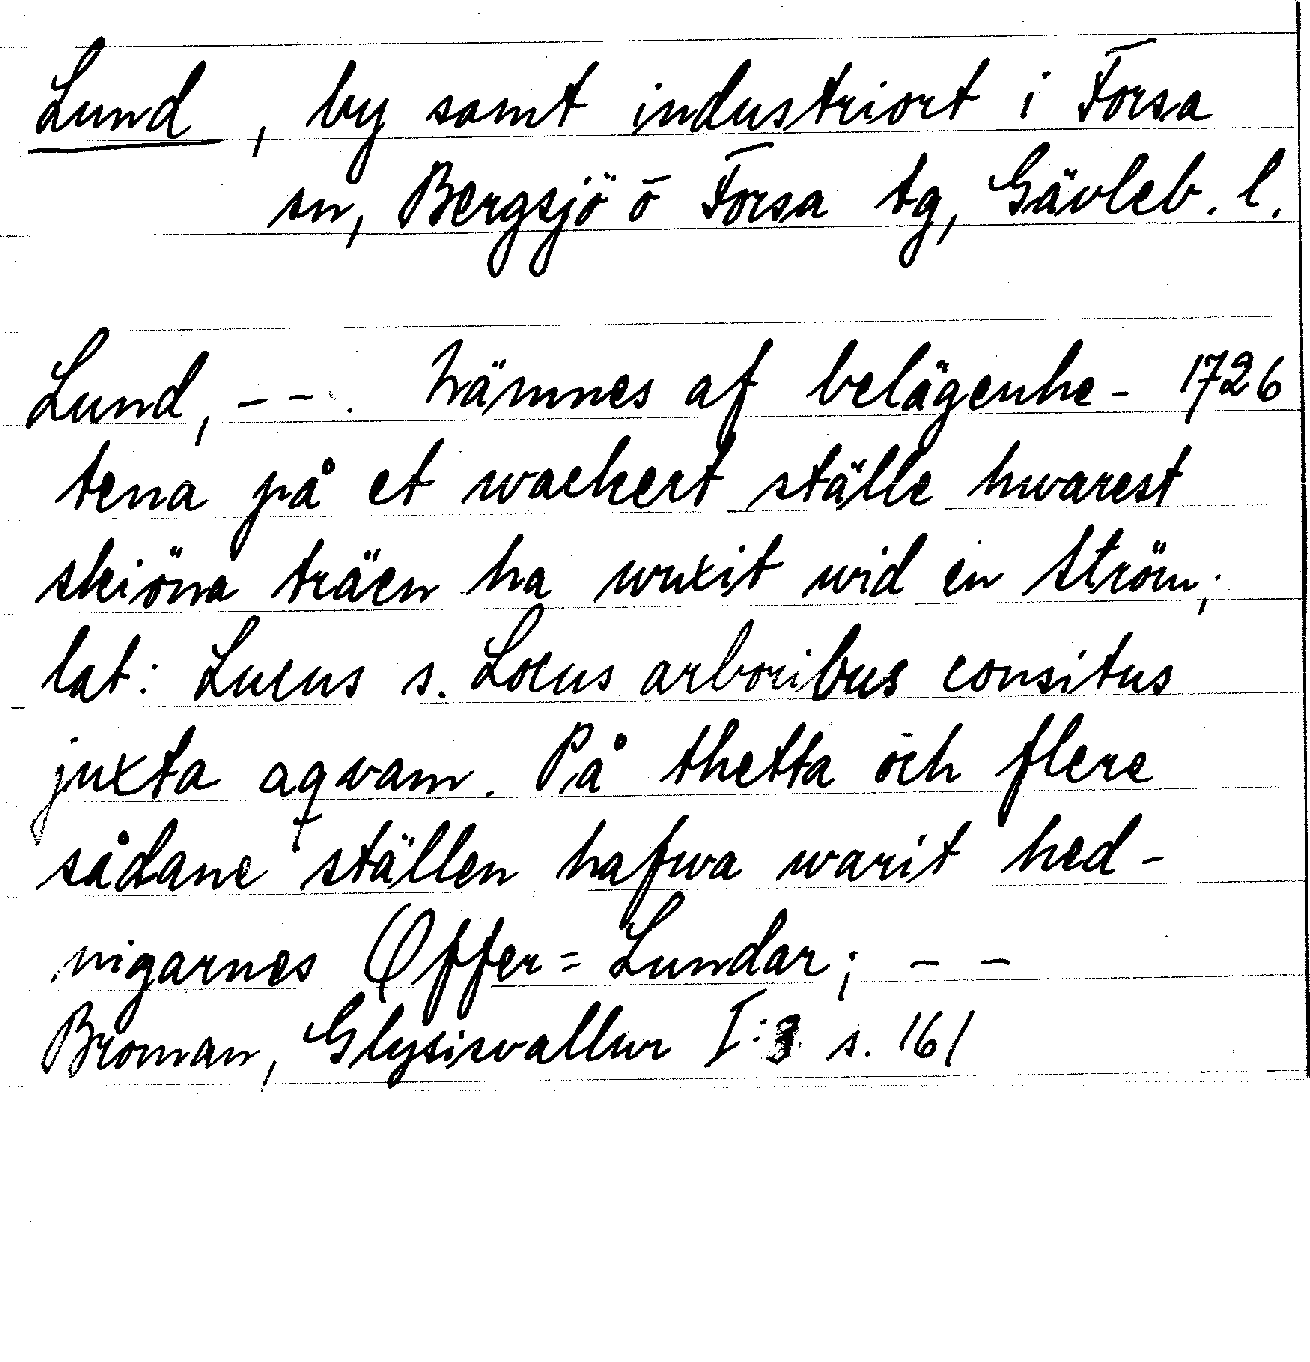 Lund, by samt industriort i Forsa
sn, Bergsjö o Forsa tg, Gävleb. l.
Lund, - - . Nämnes af belägenhe- 1726
tena på et wackert ställe hwarest
skiöna träen ha wuxit wid en Ström;
lat: Lucus s. Locus arboribus consitus
juxta aqvam. På thetta och flere
sådane ställen hafwa warit hed-
nigarnes Offer= Lundar; - -
Broman, Glysisvallur I:3 s. 161